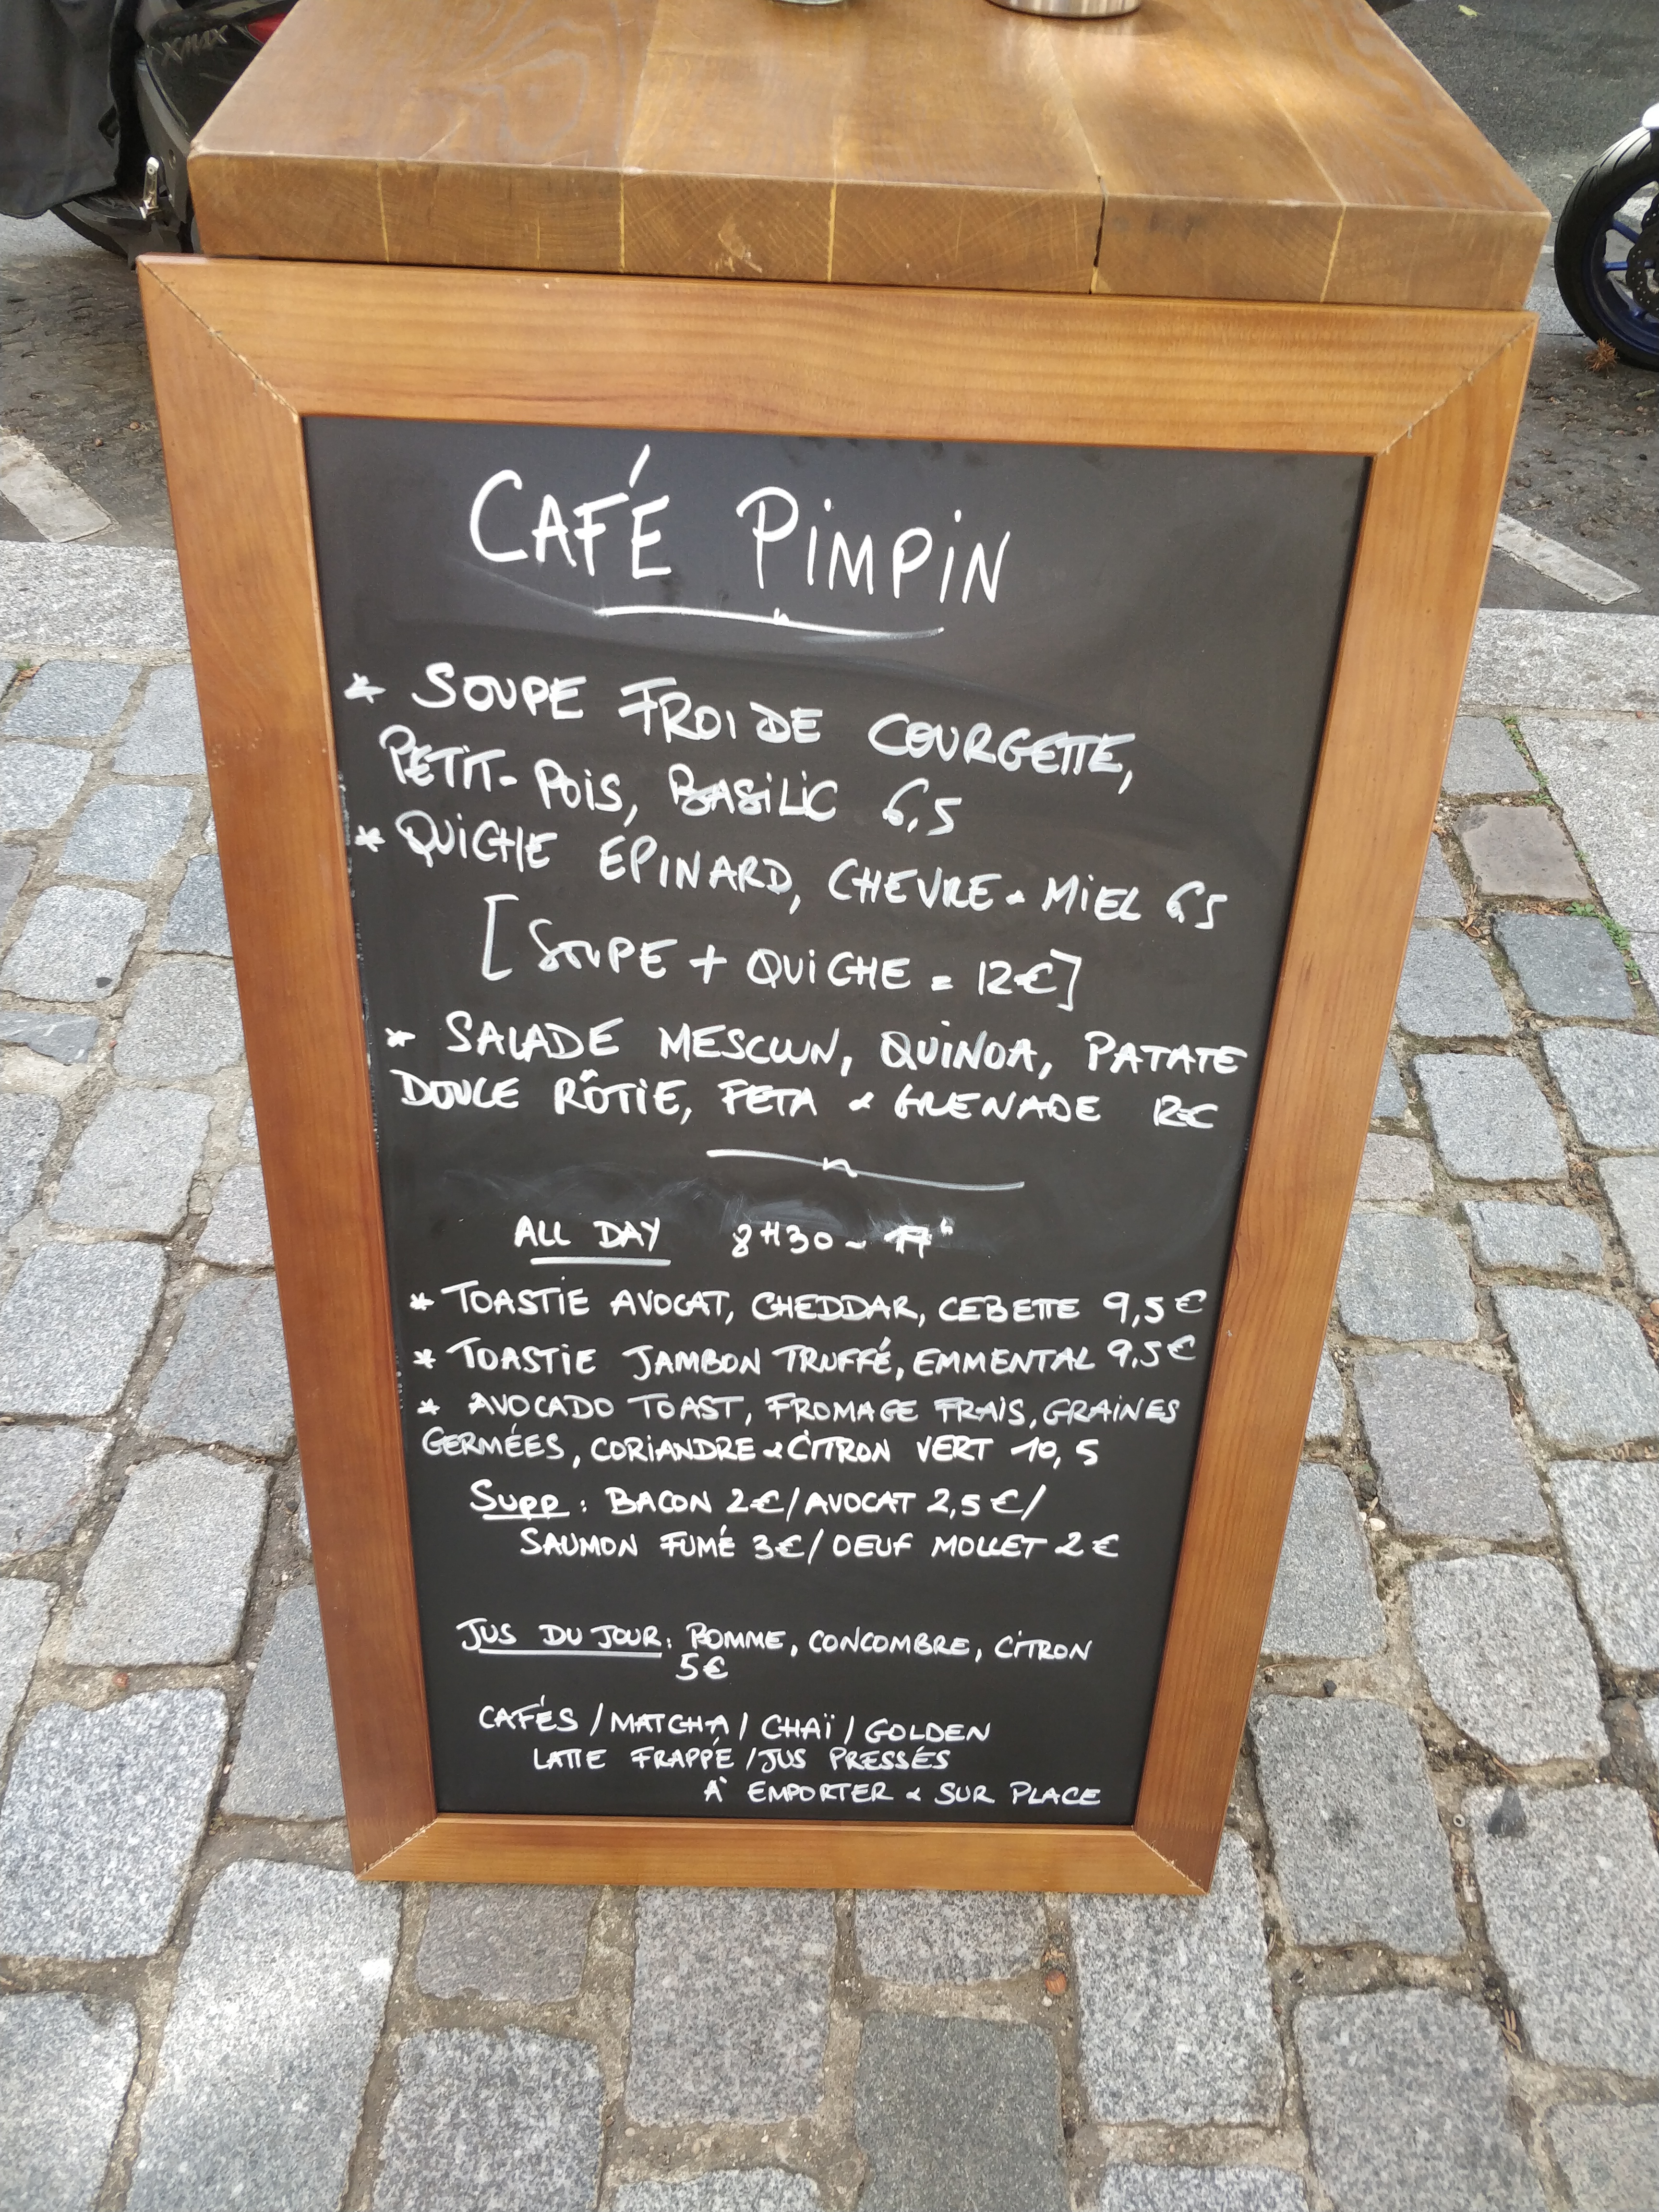 CAFÉ PIMPIN
* SOUPE FROIDE COURGETTE,
PETIT-POIS, BASILIC 6,5
* QUICHE EPINARD, CHEVRE & MIEL 6,5
[SOUPE + QUICHE = 12€]
* SALADE MESCLUN, QUINOA, PATATE
DOUCE RÔTIE, FETA & GRENADE 12€
ALL DAY 8H30 - 17h
* TOASTIE AVOCAT, CHEDDAR, CEBETTE 9,5€
* TOASTIE JAMBON TRUFFÉ, EMMENTAL 9,5€
* AVOCADO TOAST, FROMAGE FRAIS, GRAINES
GERMÉES, CORIANDRE & CITRON VERT 10,5
SUPP : BACON 2€/AVOCAT 2,5€/
SAUMON FUMÉ 3€/OEUF MOLLET 2€
JUS DU JOUR: POMME, CONCOMBRE, CITRON
5€
CAFÉS / MATCHA / CHAÏ / GOLDEN
LATTE FRAPPÉ / JUS PRESSÉS
À EMPORTER & SUR PLACE
XMAX